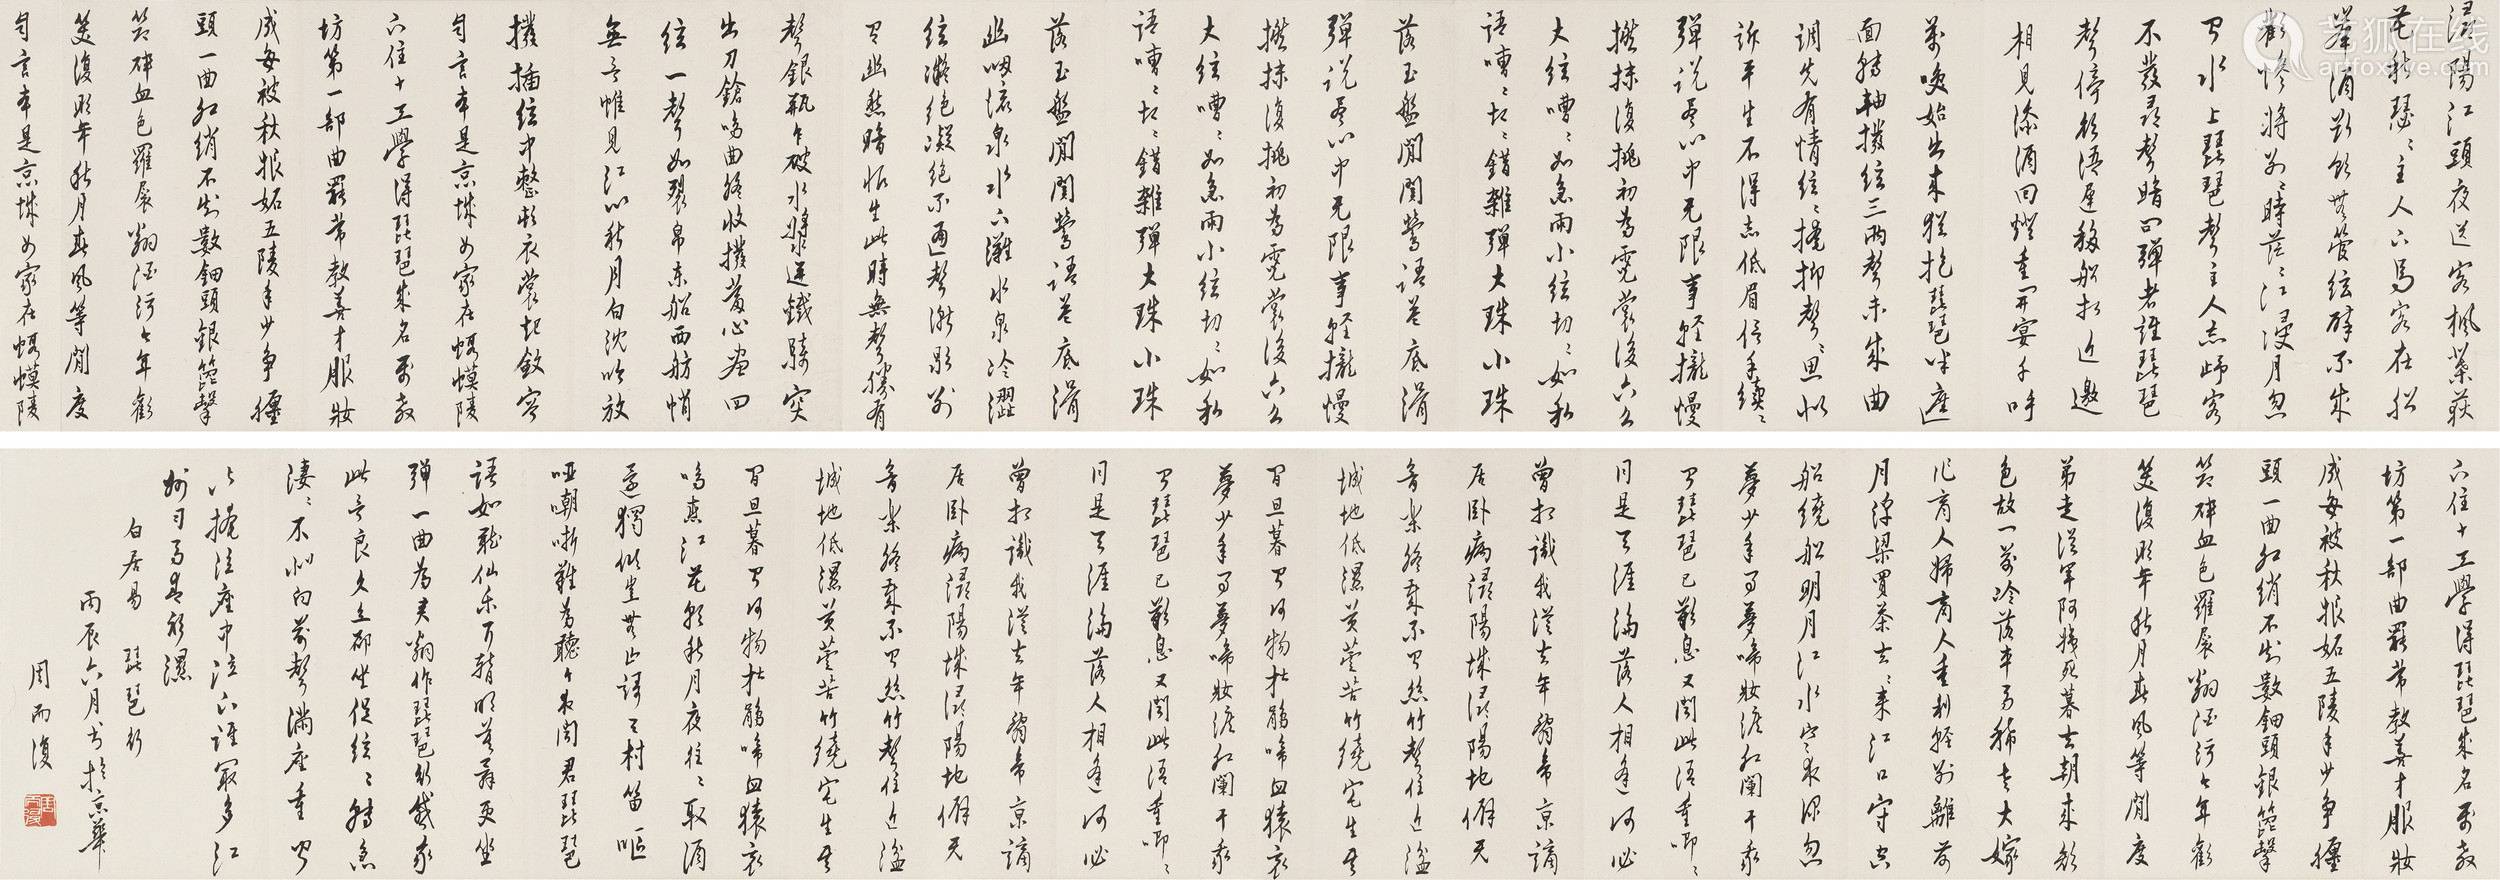 潯陽江頭夜送客楓葉荻
花秋瑟〻主人下馬客在船
舉酒欲飲無管絃醉不成
歡慘將別〻時茫〻江浸月忽
聞水上琵琶聲主人忘歸客
不發尋聲暗問彈者誰琵琶
聲停欲語遲移船相近邀
相見添酒回燈重開宴千呼
萬喚始出來猶抱琵琶半遮
面轉軸撥絃三兩聲未成曲
調先有情絃〻掩抑聲〻思似
訴平生不得志低眉信手續〻
彈說盡心中无限事輕攏慢
撚抹復挑初為霓裳後六么
大絃嘈〻如急雨小絃切〻如私
語嘈〻切〻錯雜彈大珠小珠
落玉盤間關鶯語花底滑
彈說盡心中无限事輕攏慢
撚抹復挑初為霓裳後六么
大絃嘈〻如急雨小絃切〻如私
語嘈〻切〻錯雜彈大珠小珠
落玉盤間關鶯語花底滑
幽咽流泉水下灘水泉冷澀
絃凝絕凝絕不通聲漸歇別
有幽愁暗恨生此時無聲勝有
聲銀瓶乍破水漿迸鐵騎突
出刀鎗鳴曲終收撥當心畫四
絃一聲如裂帛東船西舫悄
無言惟見江心秋月白沈吟放
撥插絃中整頓衣裳起斂容
自言本是京城女家在蝦蟆陵
下住十三學得琵琶成名屬教
坊第一部曲罷常教善才服妝
成每被秋娘妬五陵年少爭纏
頭一曲紅綃不知數鈿頭銀篦擊
節碎血色羅裙翻酒污今年歡
笑復明年秋月春風等閒度
自言本是京城女家在蝦蟆陵
下住十三學得琵琶成名屬教
坊第一部曲罷常教善才服妝
成每被秋娘妬五陵年少爭纏
頭一曲紅綃不知數鈿頭銀篦擊
節碎血色羅裙翻酒污今年歡
笑復明年秋月春風等閒度
弟走從軍阿姨死暮去朝來顏
色故門前冷落車馬稀老大嫁
作商人婦商人重利輕別離前
月浮梁買茶去〻來江口守空
船繞船明月江水寒夜深忽
夢少年事夢啼妝淚紅闌干我
聞琵琶已歎息又聞此語重唧〻
同是天涯淪落人相逢何必
曾相識我從去年辭帝京謫
居卧病潯陽城潯陽地僻无
音樂終歲不聞絲竹聲住近湓
城地低濕黃蘆苦竹繞宅生其
間旦暮聞何物杜鵑啼血猿哀
夢少年事夢啼妝淚紅闌干我
聞琵琶已歎息又聞此語重唧〻
同是天涯淪落人相逢何必
曾相識我從去年辭帝京謫
居卧病潯陽城潯陽地僻无
音樂終歲不聞絲竹聲住近湓
城地低濕黃蘆苦竹繞宅生其
間旦暮聞何物杜鵑啼血猿哀
鳴春江花朝秋月夜往〻取酒
還獨傾豈無山謌與村笛嘔
啞嘲哳難為聽今夜聞君琵琶
語如聽仙樂耳暫明莫辭更坐
彈一曲為君翻作琵琶行感我
此言良久立卻坐促絃〻轉急
淒〻不似向前聲滿座重聞
皆掩泣座中泣下誰最多江
州司馬青衫濕
白居易 琵琶行
丙辰六月書於京華
周而復
艺狐在线
artfoxlive.com